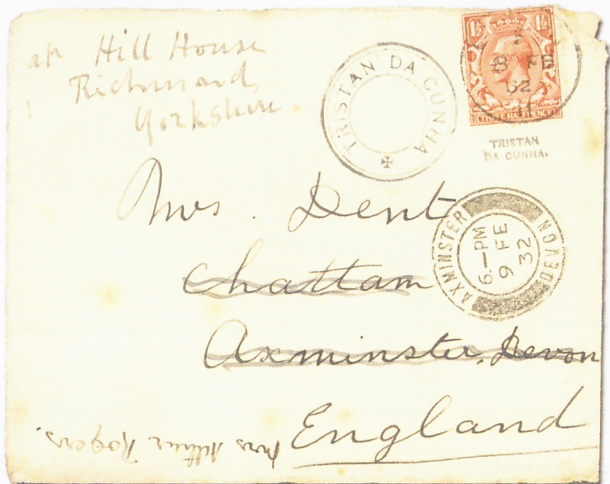 at Hill House
Richmond,
Yorkshire.
TRISTAN DA CUNHA
1½ 1½
8 FE
32
THREE HALFPENCE
TRISTAN
DA CUNHA.
Mrs. Dent
Chattam
Axminster, Devon
England
AXMINSTER DEVON
6.-PM
9 FE
32
Mrs Arthur Rogers.